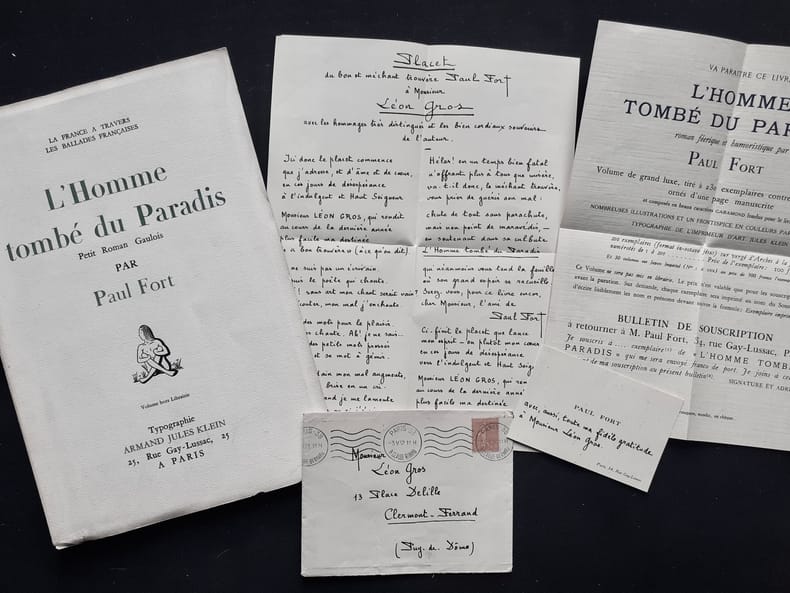 LA FRANCE A TRAVERS
LES BALLADES FRANÇAISES
L'Homme
tombé du Paradis
Petit Roman Gaulois
PAR
Paul Fort
Volume hors Librairie
Typographie
ARMAND JULES KLEIN
25, Rue Gay-Lussac, 25
A PARIS
Placet
du bon et méchant trouvère Paul Fort
à Monsieur
Léon Gros
avec les hommages très distingués et les bien cordiaux souvenirs
de l'auteur.
Ici donc le placet commence
que j'adresse, et d'âme et de cœur,
en ces jours de désespérance
à l'indulgent et Haut Seigneur
Monsieur LÉON GROS, qui rendit
au cours de la dernière année
plus facile ma destinée
bon trouvère (à ce qu'on dit)
suis par un écrivain
suis le poète qui chante.
sans est mon chant serait vain?
m'écouter, mon mal j'enchante.
des mots pour le plaisir
chante. Ah! je ne sais
des petits mots
et se mot à gémir.
mon mal argumente,
brise en un cri
quand je me lamente
Hélas! en un temps bien fatal
n'offrant plus à tous que misère,
va-t-il donc, le méchant trouvère,
vous prier de guérir son mal:
chute de tout sans parachute,
mais non point de maravédis,
en soutenant dans sa culbute
L'Homme tombé du Paradis
qui néanmoins vous tend la famille
où son grand espoir se recueille
Soyez vous, pour ce livre encor,
cher Monsieur, l'ami de
Paul Fort
Ci-finit le placet que lance
mon esprit – ou plutôt mon cœur
en ces jours de désespérance
vers l'indulgent et Haut Seigneur
Monsieur LÉON GROS, qui
au cours de la dernière année
plus facile ma destinée
VA PARAITRE CE LIVR
L'HOMME
TOMBÉ DU PAR
roman féerique et humoristique par
PAUL FORT
Volume de grand luxe, tiré à 230 exemplaires contre
ornés d'une page manuscrite
et composés en beaux caractères GARAMOND fondus pour le
NOMBREUSES ILLUSTRATIONS ET UN FRONTISPICE EN COULEURS PAR
TYPOGRAPHIE DE L'IMPRIMEUR D'ART JULES KLEIN
200 exemplaires (format in-octavo
numérotés de 1 à 200 Prix de l'exemplaire: 100
Ce Volume ne sera pas mis en librairie. Le prix n'est valable que pour les
avant la parution. Sur demande, chaque exemplaire sera imprimé au nom du Sous
d'écrire lisiblement les nom et prénoms devant suivre la formule: Exemplaire imprimé
BULLETIN DE SOUSCRIPTION
à retourner à M. Paul Fort, 34, rue Gay-Lussac, P
Je souscris à exemplaire(s) de « L'HOMME TOMB
PARADIS » que me sera envoyé franco de port. Je joins à ce
de ma souscription au présent bulletin
SIGNATURE ET ADRE
PAUL FORT
avec, aussi, toute ma fidèle gratitude
à Monsieur Léon Gros.
Paris, 34, Rue Gay-Lussac
PARIS
Monsieur
Léon Gros
13 Place Delille
Clermont-Ferrand
(Puy-de-Dôme)